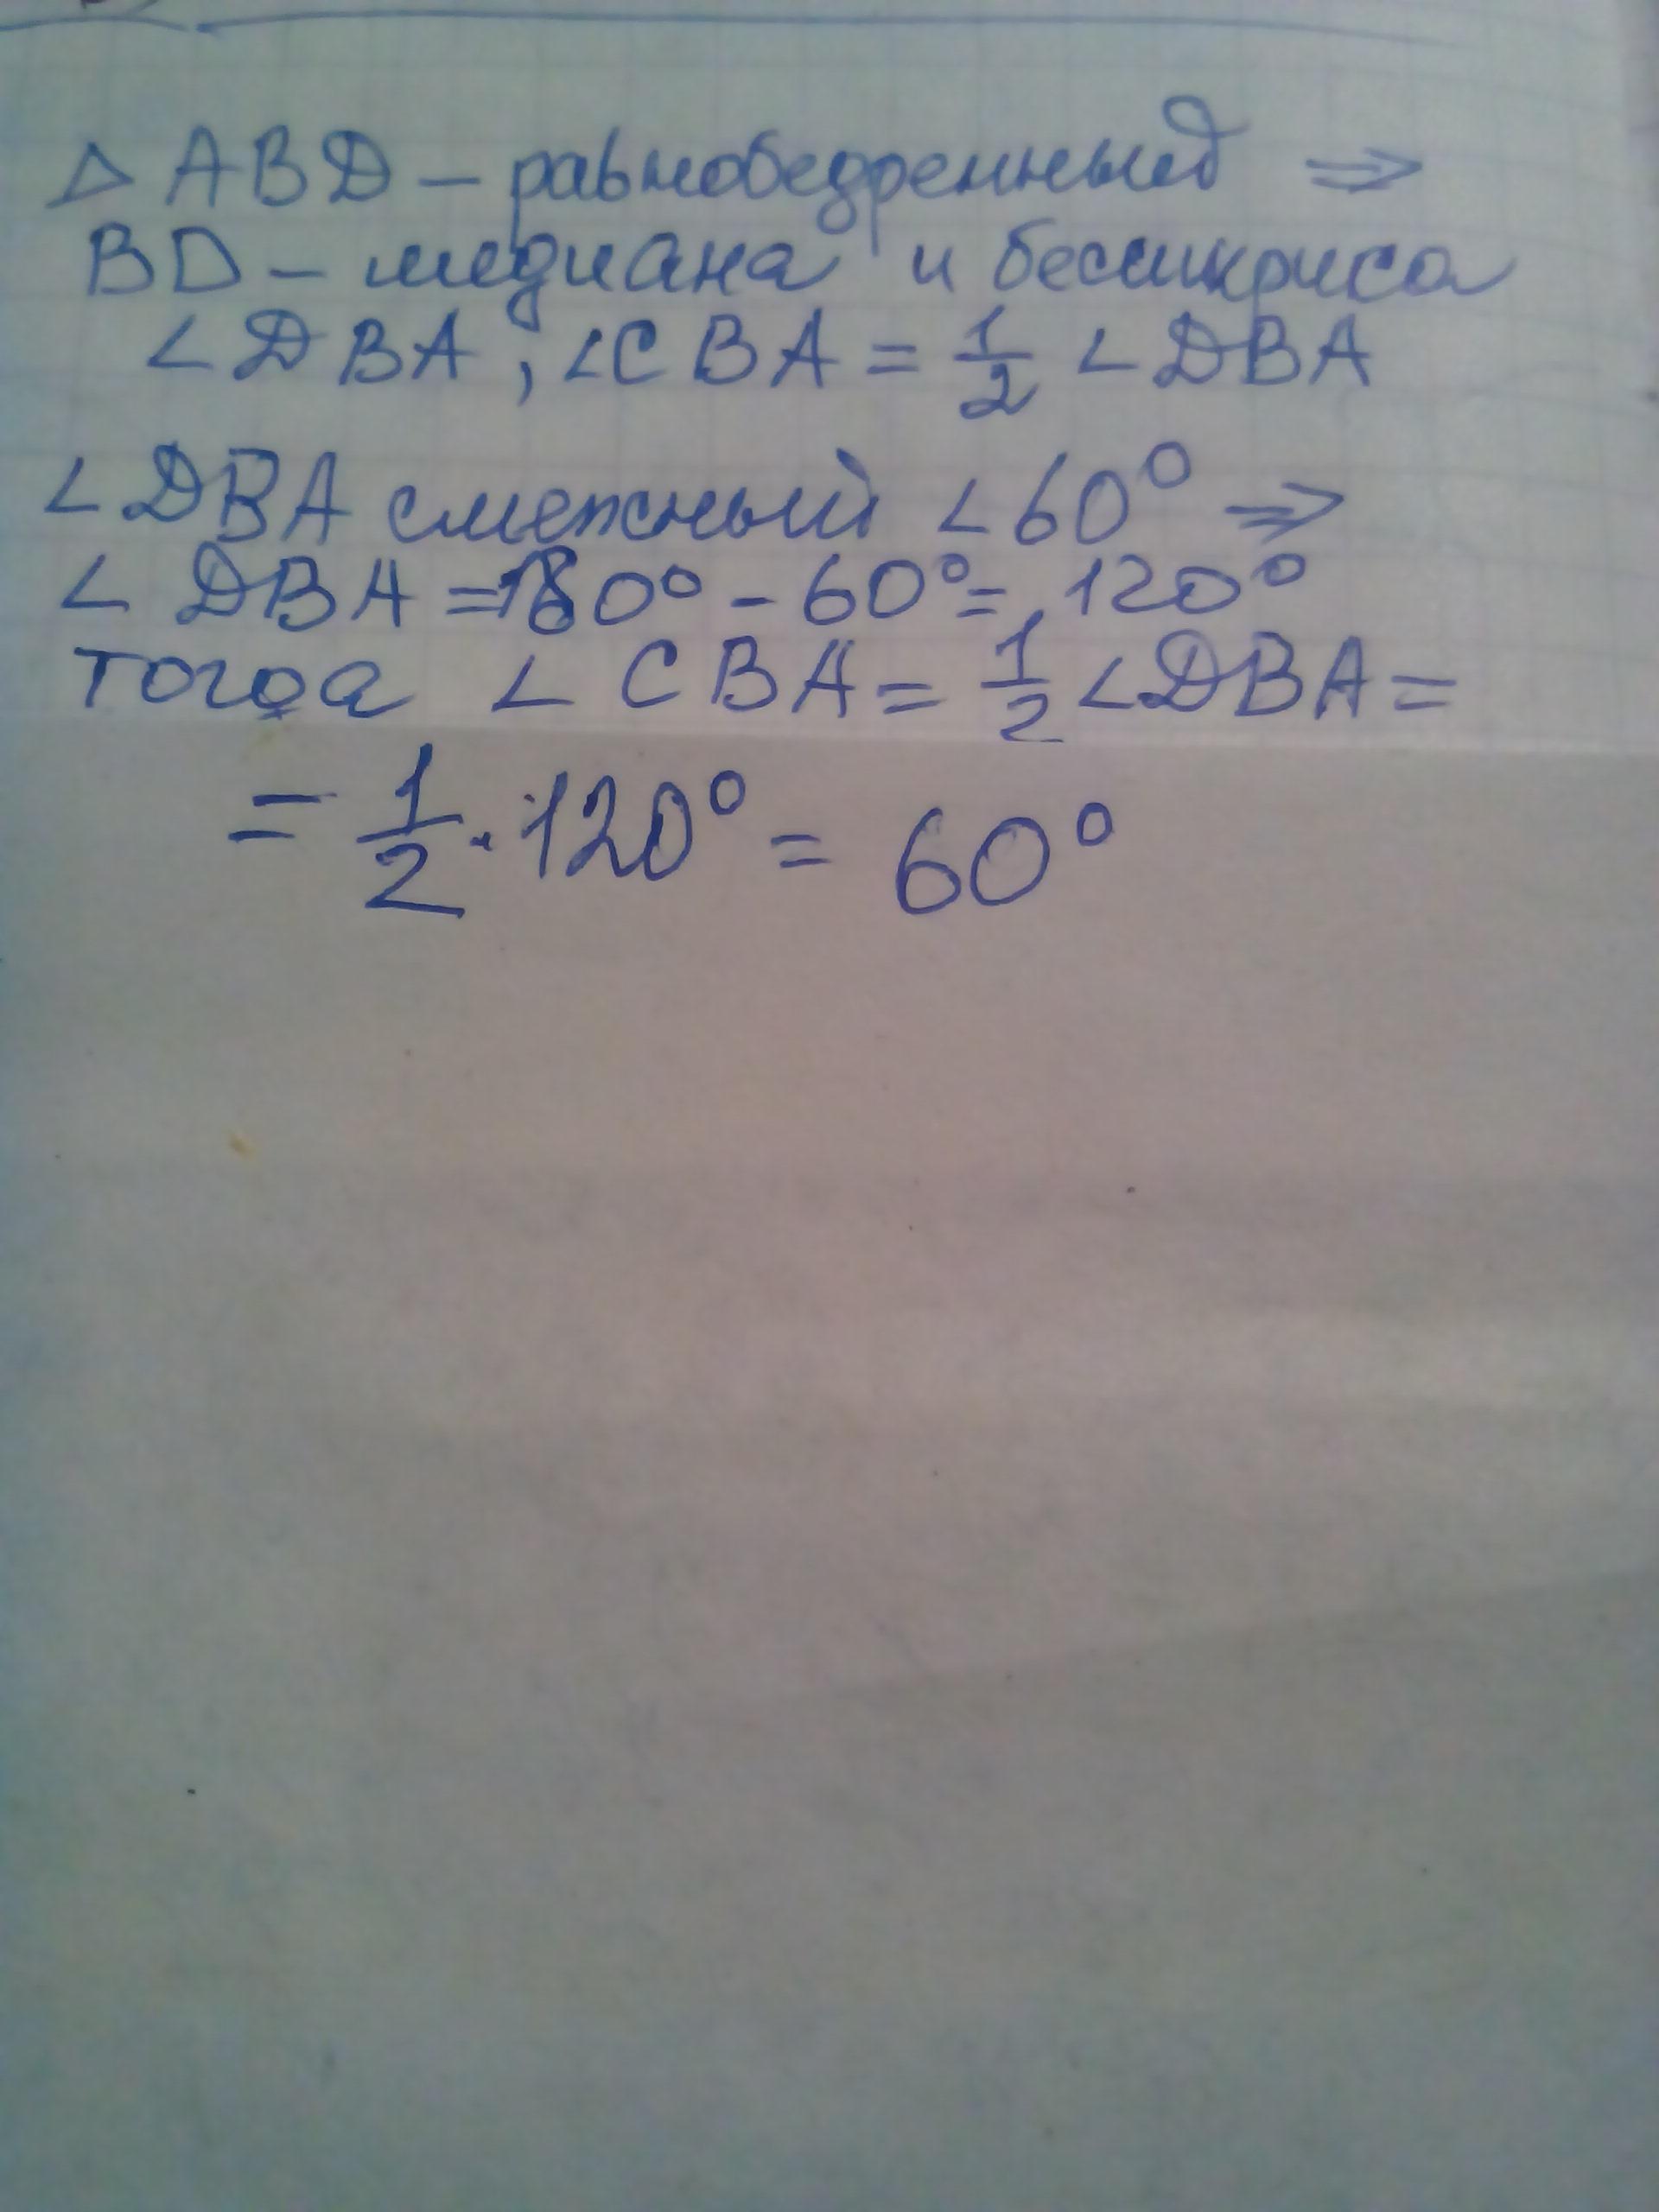 △ ABD – равнобедренный ⇒
BD – медиана и бессикриса
∠DBA, ∠CBA = 1/2 ∠DBA
∠DBA смежный ∠60° ⇒
∠DBA = 180° - 60° = 120°
тогда ∠CBA = 1/2 ∠DBA =
= 1/2 · 120° = 60°